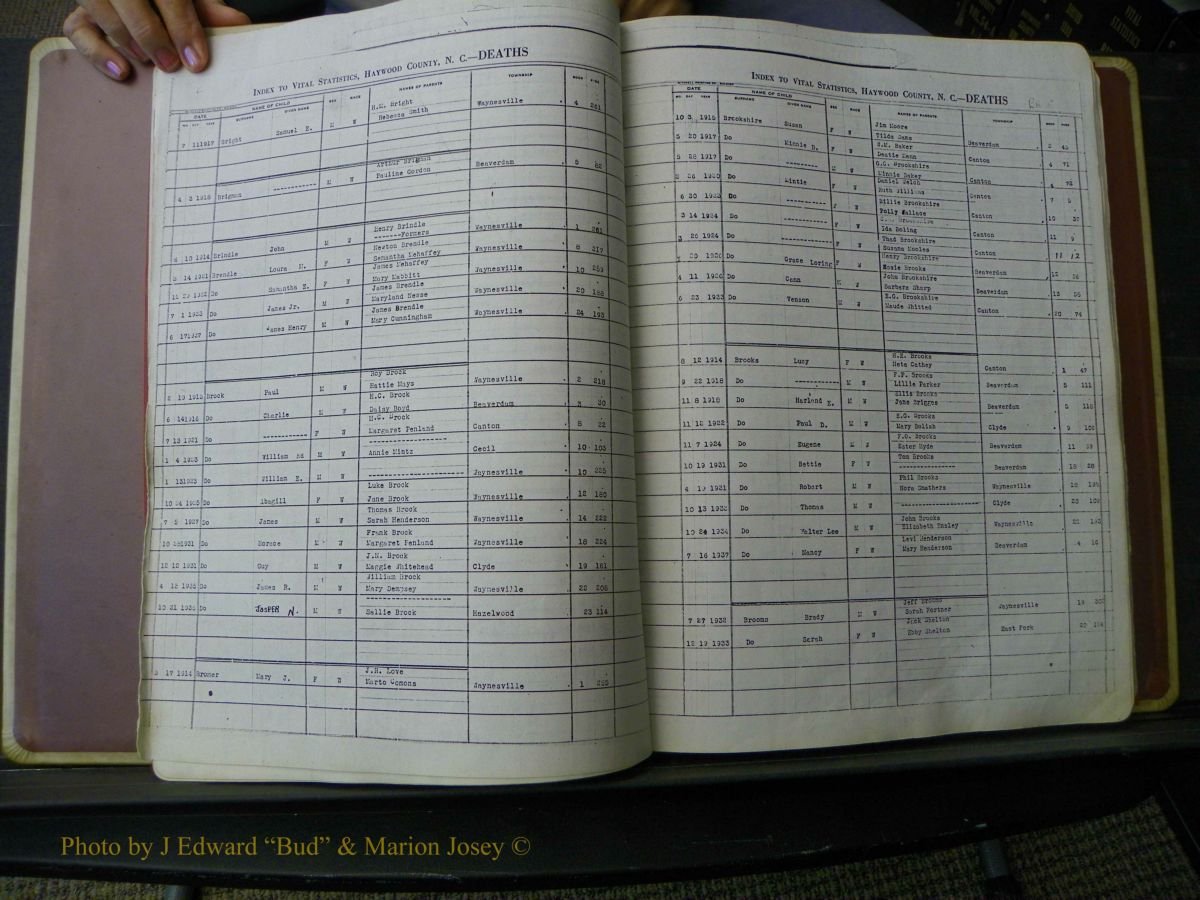 INDEX TO VITAL STATISTICS, HAYWOOD COUNTY, N. C.—DEATHS
DATE NAME OF CHILD SEX RACE NAMES OF PARENTS TOWNSHIP BOOK PAGE
SURNAME GIVEN NAME
H.M. Bright
111917 Bright Samuel E. M W Rebecca Smith Waynesville 4 261
Arthur Brigman
4 3 1918 Brigman ---------- M W Pauline Gordon Beaverdam 5 82
Henry Brindle
10 1914 Brindle John M W -------Formers Waynesville 1 261
Newton Brendle
14 1921 Brendle Loura M. F W Samantha Mehaffey Waynesville 8 319
James Mehaffey
Do Samantha E. F W Mary Mabbitt Waynesville 10 259
James Brendle
7 1 1933 Do James Jr. M W Maryland Nesse Waynesville 20 188
James Brendle
6 171937 Do James Henry M W Mary Cunningham Waynesville 24 193
Roy Brock
2 10 1915 Brock Paul M W Hattie Mays Waynesville 2 218
H.C. Brock
6 141916 Do Charlie M W Daisy Boyd Beaverdam 3 30
H.C. Brock
7 13 1921 Do ---------- F W Margaret Penland Canton 8 22
1 4 1923 Do William Ed M W Annie Mintz Cecil 10 103
1 131923 Do William E. M W Waynesville 10 225
Luke Brock
10 24 1925 Do Abagill F W Jane Brock Waynesville 12 180
Thomas Brock
7 2 1927 Do James M W Sarah Henderson Waynesville 14 222
Frank Brock
Do Horace M W Margaret Penland Waynesville 18 224
J.N. Brock
12 12 1931 Do Guy M W Maggie Whitehead Clyde 19 161
William Brock
4 12 1935 Do James R. M W Mary Dempsey Waynesville 22 208
10 21 1936 Do JASPER N. M W Sallie Brock Hazelwood 23 114
J.H. Love
17 1914 Bromer Mary J. F B Marto Comons Waynesville 1 285
INDEX TO VITAL STATISTICS, HAYWOOD COUNTY, N. C.—DEATHS
DATE NAME OF CHILD SEX RACE NAMES OF PARENTS TOWNSHIP BOOK PAGE
SURNAME GIVEN NAME
Jim Moore
10 3 1915 Brookshire Susan F W Tilda Sams Beaverdam 2 45
S.M. Baker
5 20 1917 Do Minnie D. F W Canton 4 71
G.C. Brookshire
5 28 1917 Do -------- M W Canton 4 72
Daniel Welch
2 26 1920 Do F W Ruth Williams Canton 7 5
Billie Brookshire
6 30 1923 Do --------- F W Polly Wallace Canton 10 37
3 14 1924 Do --------- F W Ida Boling Canton 11 9
Thad Brookshire
3 26 1924 Do --------- F W Canton 11 12
Henry Brookshire
Do Grace Loring F W Rosie Brooks Beaverdam 12 26
John Brookshire
4 11 1926 Do Cann M W Barbara Sharp Beaverdam 13 55
Z.G. Brookshire
6 23 1933 Do Venson M W Maude Whitted Canton 20 74
H.E. Brooks
8 12 1914 Brooks Lucy F W Meta Cathey Canton 1 47
P.F. Brooks
9 22 1918 Do ---------- M W Lillie Parker Beaverdam 5 111
Ellis Brooks
11 8 1918 Do Harland E. M W Jane Briggs Beaverdam 5 118
Z.G. Brooks
11 12 1922 Do Paul D. M W Mary Dolish Clyde 9 109
F.O. Brooks
11 7 1924 Do Eugene M W Ester Hyde Beaverdam 11 59
Tom Brooks
10 19 1931 Do Hettie F W ------------- Beaverdam 18 28
Phil Brooks
4 19 1931 Do Robert M W Nora Smathers Waynesville 18
10 13 1935 Do Thomas M W ------------- Clyde
John Brooks
10 24 1934 Do Walter Lee M W Elizabeth Ensley Waynesville 21
Levi Henderson
7 16 1937 Do Nancy F W Mary Henderson Beaverdam
Jeff Brooms
7 27 1932 Brooms Brady M W Sarah Fortner Waynesville 19
Jack Shelton
12 19 1933 Do Sarah F W Ebby Shelton East Fork
Photo by J Edward “Bud” & Marion Josey ©